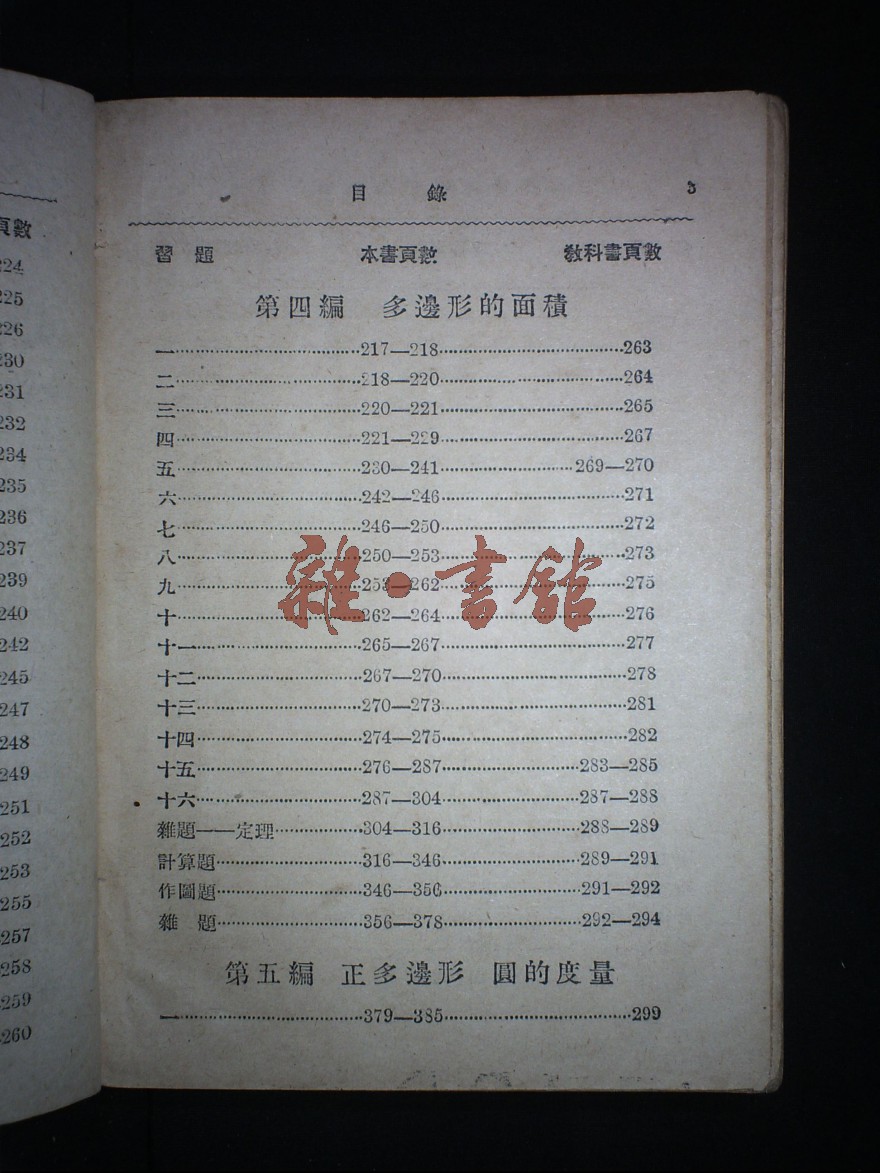 頁數
224
225
226
230
231
232
234
235
236
237
239
240
242
245
247
248
249
251
252
253
255
257
258
259
260
目 錄 3
習 題 本書頁數 教科書頁數
第四編 多邊形的面積
一 217—218 263
二 218—220 264
三 220—221 265
四 221—229 267
五 230—241 269—270
六 242—246 271
七 246—250 272
八 250—253 273
九 253—262 275
十 262—264 276
十一 265—267 277
十二 267—270 278
十三 270—273 281
十四 274—275 282
十五 276—287 283—285
十六 287—304 287—288
雜題——定理 304—316 288—289
計算題 316—346 289—291
作圖題 346—356 291—292
雜 題 356—378 292—294
第五編 正多邊形 圓的度量
一 379—385 299
雜·書館